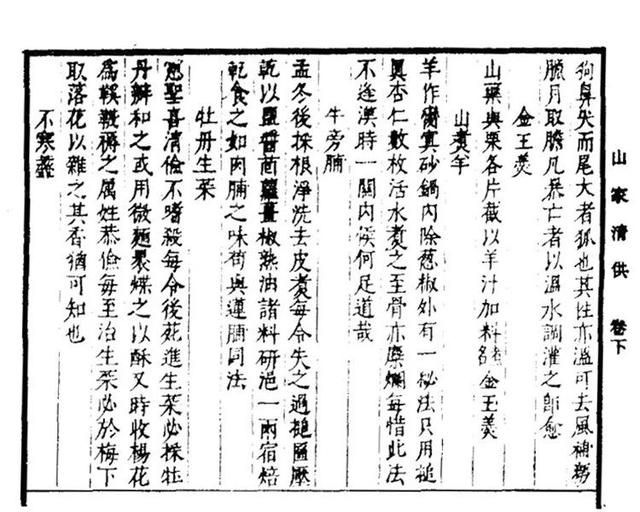 山家清供 卷下
狗鼻尖而尾大者狐也其性亦溫可去風補勞
臘月取膽凡暴亡者以溫水調灌之即愈
金玉羹
山藥與栗各片截以羊汁加料煮金玉羹
山煮羊
羊作臠寘砂鍋內除葱椒外有一秘法只用槌
真杏仁數枚活水煮之至骨亦糜爛每惜此法
不逢漢時一關內候何足道哉
牛旁脯
孟冬後採根淨洗去皮煮每令失之過槌匾壓
乾以鹽醬茴蘿薑椒熟油諸料研浥一兩宿焙
乾食之如肉脯之味荀與蓮脯同法
牡丹生菜
憲聖喜清儉不嗜殺每令後苑進生菜必採牡
丹瓣和之或用微麵裹煠之以酥又時收楊花
爲鞋韈褥之属姓恭儉每至治生菜必於梅下
取落花以雜之其香猶可知也
不寒虀